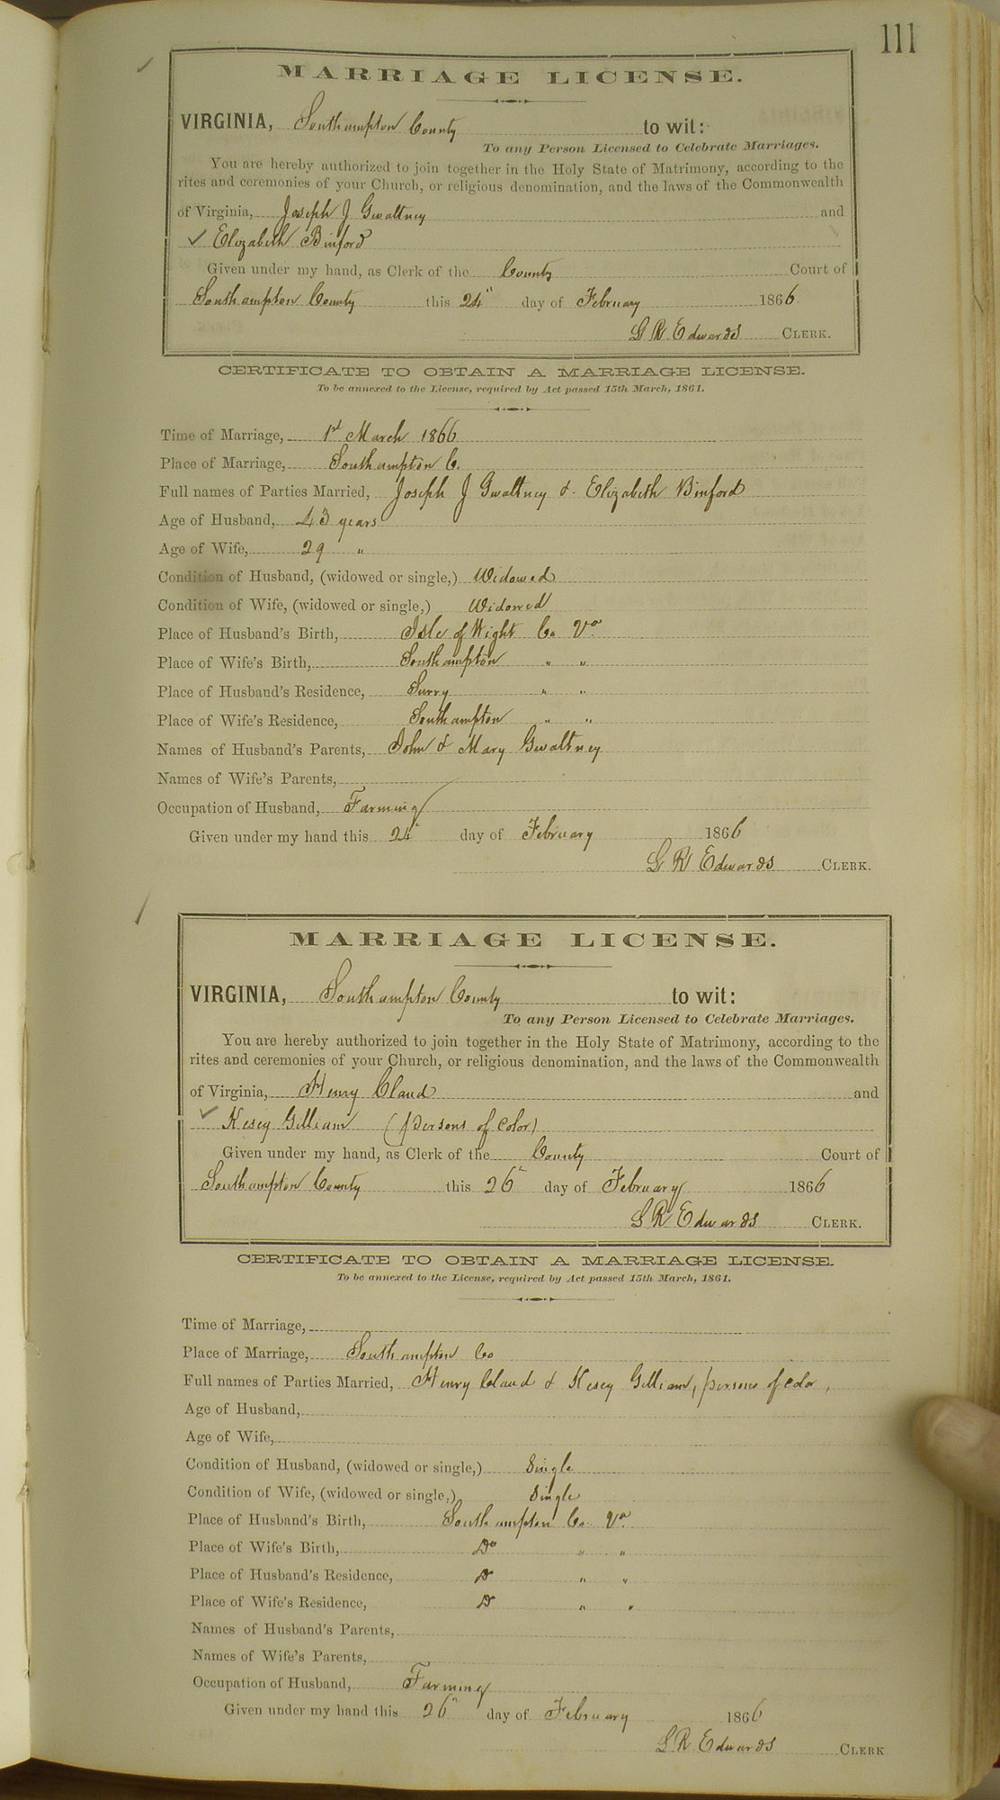 111
MARRIAGE LICENSE.
VIRGINIA, Southampton County to wit:
To any Person Licensed to Celebrate Marriages.
You are hereby authorized to join together in the Holy State of Matrimony, according to the
rites and ceremonies of your Church, or religious denomination, and the laws of the Commonwealth
of Virginia, Joseph J Gwaltney and
✓ Elizabeth Binford
Given under my hand, as Clerk of the County Court of
Southampton County this 24" day of February 1866
L R Edwards CLERK.
CERTIFICATE TO OBTAIN A MARRIAGE LICENSE.
To be annexed to the License, required by Act passed 15th March, 1861.
Time of Marriage, 1st March 1866
Place of Marriage, Southampton C.
Full names of Parties Married, Joseph J Gwaltney & Elizabeth Binford
Age of Husband, 43 years
Age of Wife, 29 "
Condition of Husband, (widowed or single,) Widowed
Condition of Wife, (widowed or single,) Widowed
Place of Husband's Birth, Isle of Wight Co Va
Place of Wife's Birth, Southampton " "
Place of Husband's Residence, Surry " "
Place of Wife's Residence, Southampton " "
Names of Husband's Parents, John & Mary Gwaltney
Names of Wife's Parents,
Occupation of Husband, Farming
Given under my hand this 24" day of February 1866
L R Edwards CLERK.
MARRIAGE LICENSE.
VIRGINIA, Southampton County to wit:
To any Person Licensed to Celebrate Marriages.
You are hereby authorized to join together in the Holy State of Matrimony, according to the
rites and ceremonies of your Church, or religious denomination, and the laws of the Commonwealth
of Virginia, Henry Claud and
✓ Kesey Gilliam (persons of Color)
Given under my hand, as Clerk of the County Court of
Southampton County this 26" day of February 1866
L R Edwards CLERK.
CERTIFICATE TO OBTAIN A MARRIAGE LICENSE.
To be annexed to the License, required by Act passed 15th March, 1861.
Time of Marriage,
Place of Marriage, Southampton Co
Full names of Parties Married, Henry Claud & Kesey Gilliam, persons of Color,
Age of Husband,
Age of Wife,
Condition of Husband, (widowed or single,) Single
Condition of Wife, (widowed or single,) Single
Place of Husband's Birth, Southampton Co Va
Place of Wife's Birth, Do " "
Place of Husband's Residence, Do " "
Place of Wife's Residence, Do " "
Names of Husband's Parents,
Names of Wife's Parents,
Occupation of Husband, Farming
Given under my hand this 26" day of February 1866
L R Edwards CLERK